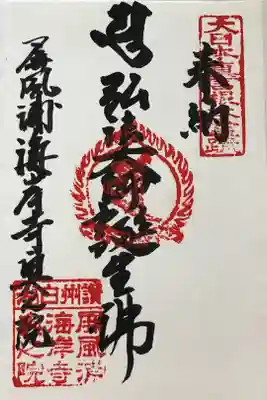 奉納
弘法大師誕生佛
屏風浦海岸寺奥之院
讃州白方
屏風浦
海岸寺
奥之院